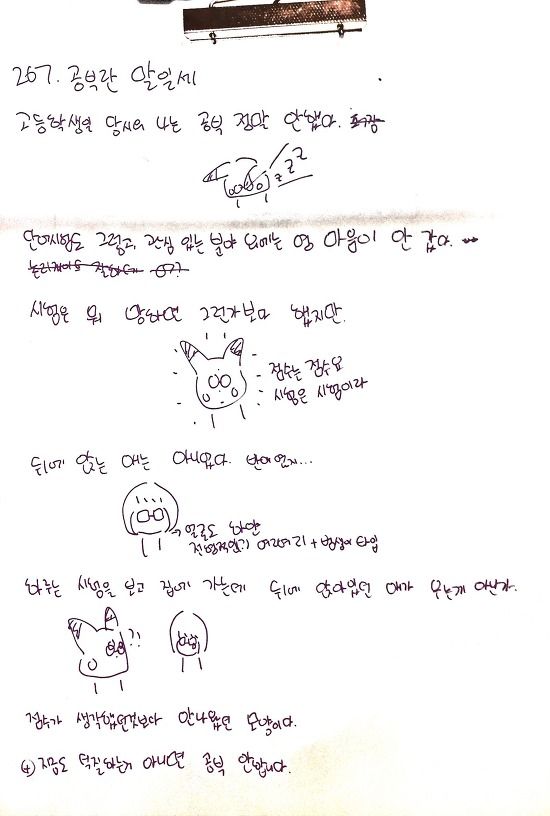 267. 공부란 말일세
고등학생일 당시의 나는 공부 정말 안했다.
zzZ
단어시험도 그렇고, 관심 있는 분야 외에는 영 마음이 안 갔다.
시험은 뭐 망하면 그런가보다 했지만.
점수는 점수요
시험은 시험이라
뒤에 앉는 애는 아니었다. 반에 있지...
얼굴도 하얀
전형적인 여리여리 + 범생이 타입
하루는 시험을 보고 집에 가는데 뒤에 앉아있던 애가 우는게 아닌가.
?!
점수가 생각했던것보다 안나왔던 모양이다.
(+) 지금도 덕질하는거 아니면 공부 안합니다.